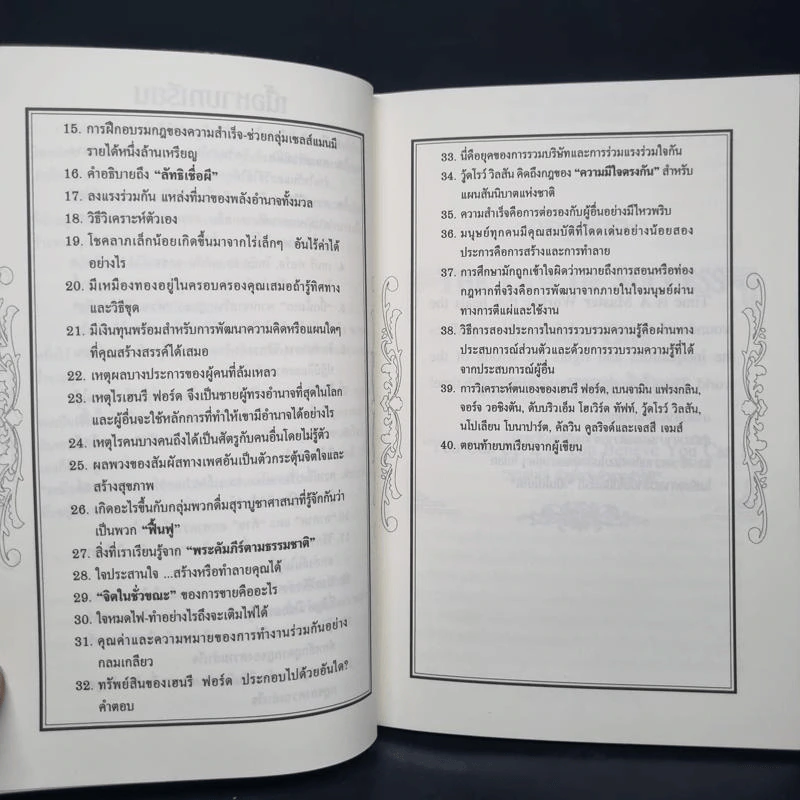 15. การฝึกอบรมกฎของความสำเร็จ-ช่วยกลุ่มเซลส์แมนมี
รายได้หนึ่งล้านเหรียญ
16. คำอธิบายถึง “ลัทธิเชื่อผี”
17. ลงแรงร่วมกัน แหล่งที่มาของพลังอำนาจทั้งมวล
18. วิธีวิเคราะห์ตัวเอง
19. โชคลาภเล็กน้อยเกิดขึ้นมาจากไร่เล็กๆ อันไร้ค่าได้
อย่างไร
20. มีเหมืองทองอยู่ในครอบครองคุณเสมอถ้ารู้ทิศทาง
และวิธีขุด
21. มีเงินทุนพร้อมสำหรับการพัฒนาความคิดหรือแผนใดๆ
ที่คุณสร้างสรรค์ได้เสมอ
22. เหตุผลบางประการของผู้คนที่ล้มเหลว
23. เหตุไรเฮนรี ฟอร์ด จึงเป็นชายผู้ทรงอำนาจที่สุดในโลก
และผู้อื่นจะใช้หลักการที่ทำให้เขามีอำนาจได้อย่างไร
24. เหตุไรคนบางคนถึงได้เป็นศัตรูกับคนอื่นโดยไม่รู้ตัว
25. ผลพวงของสัมผัสทางเพศอันเป็นตัวกระตุ้นจิตใจและ
สร้างสุขภาพ
26. เกิดอะไรขึ้นกับกลุ่มพวกดื่มสุราบูชาศาสนาที่รู้จักกันว่า
เป็นพวก “ฟื้นฟู”
27. สิ่งที่เราเรียนรู้จาก “พระคัมภีร์ตามธรรมชาติ”
28. ใจประสานใจ ...สร้างหรือทำลายคุณได้
29. “จิตในชั่วขณะ” ของการขายคืออะไร
30. ใจหมดไฟ-ทำอย่างไรถึงจะเติมไฟได้
31. คุณค่าและความหมายของการทำงานร่วมกันอย่าง
กลมเกลียว
32. ทรัพย์สินของเฮนรี ฟอร์ด ประกอบไปด้วยอันใด?
คำตอบ
33. นี่คือยุคของการรวมบริษัทและการร่วมแรงร่วมใจกัน
34. วู้ดโรว์ วิลสัน คิดถึงกฎของ “ความมีใจตรงกัน” สำหรับ
แผนสันนิบาตแห่งชาติ
35. ความสำเร็จคือการต่อรองกับผู้อื่นอย่างมีไหวพริบ
36. มนุษย์ทุกคนมีคุณสมบัติที่โดดเด่นอย่างน้อยสอง
ประการคือการสร้างและการทำลาย
37. การศึกษามักถูกเข้าใจผิดว่าหมายถึงการสอนหรือท่อง
กฎหากที่จริงคือการพัฒนาจากภายในใจมนุษย์ผ่าน
ทางการตีแผ่และใช้งาน
38. วิธีการสองประการในการรวบรวมความรู้คือผ่านทาง
ประสบการณ์ส่วนตัวและด้วยการรวบรวมความรู้ที่ได้
จากประสบการณ์ผู้อื่น
39. การวิเคราะห์ตนเองของเฮนรี ฟอร์ด, เบนจามิน แฟรงกลิน,
จอร์จ วอชิงตัน, ดับบริวเอ็ม โฮเวิร์ด ทัฟท์, วู้ดโรว์ วิลสัน,
นโปเลียน โบนาปาร์ต, คัลวิน คูลริจด์และเจสสี เจมส์
40. ตอนท้ายบทเรียนจากผู้เขียน